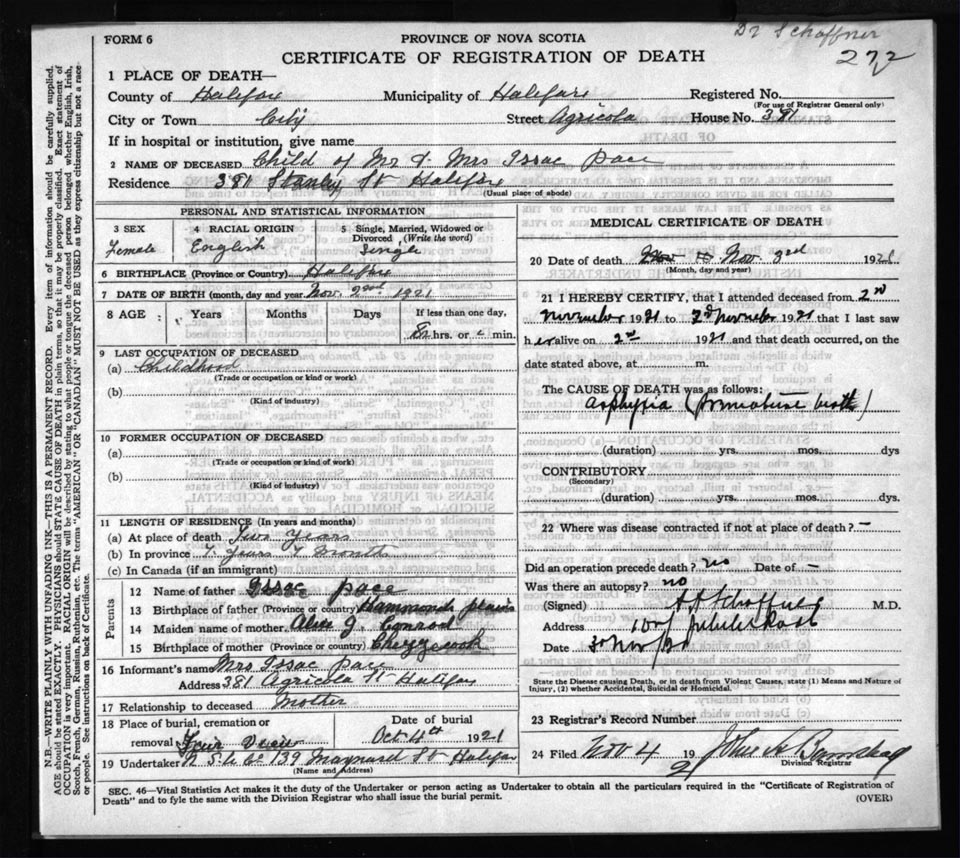 Dr Schaffner
272
FORM 6
PROVINCE OF NOVA SCOTIA
CERTIFICATE OF REGISTRATION OF DEATH
1 PLACE OF DEATH—
County of Halifax Municipality of Halifax Registered No.
(For use of Registrar General only)
City or Town City Street Agricola House No. 381
If in hospital or institution, give name
2 NAME OF DECEASED Child of Mr & Mrs Issac Pace
Residence 381 Stanley St Halifax
(Usual place of abode)
PERSONAL AND STATISTICAL INFORMATION
3 SEX
Female
4 RACIAL ORIGIN
English
5 Single, Married, Widowed or
Divorced, (Write the word)
Single
6 BIRTHPLACE (Province or Country) Halifax
7 DATE OF BIRTH (month, day and year Nov. 2nd 1921
8 AGE : Years Months Days
If less than one day,
8 hrs. or min.
9 LAST OCCUPATION OF DECEASED
(a) Childhood
(Trade or occupation or kind or work)
(b)
(Kind of industry)
10 FORMER OCCUPATION OF DECEASED
(a)
(Trade or occupation or kind or work)
(b)
(Kind of industry)
11 LENGTH OF RESIDENCE (In years and months)
(a) At place of death Two years
(b) In province 7 years 7 months
(c) In Canada (if an immigrant)
Parents
12 Name of father Issac Pace
13 Birthplace of father (Province or country Hammonds plains
14 Maiden name of mother Alice J. Conrod
15 Birthplace of mother (Province or country) Chezzecook
16 Informant's name Mrs Issac Pace
Address 381 Agricola St Halifax
17 Relationship to deceased Mother
18 Place of burial, cremation or
removal Fair View
Date of burial
Oct 4th 1921
19 Undertaker N S U Co 139 Maynard St Halifax
(Name and Address)
MEDICAL CERTIFICATE OF DEATH
20 Date of death Nov. 3rd 1921
(Month, day and year)
21 I HEREBY CERTIFY, that I attended deceased from 2nd
November 1921 to 2nd November 1921 that I last saw
her alive on 2nd 1921 and that death occurred, on the
date stated above, at m.
The CAUSE OF DEATH was as follows:
Asphyxia (Premature birth)
(duration) yrs. mos. dys
CONTRIBUTORY
(Secondary)
(duration) yrs. mos. dys.
22 Where was disease contracted if not at place of death? —
Did an operation precede death? no Date of —
Was there an autopsy? no
(Signed) Schaffner M.D.
Address Jubilee Road
Date 3 Nov/21
State the Disease causing Death, or in death from Violent Causes, state (1) Means and Nature of
Injury, (2) whether Accidental, Suicidal or Homicidal.
23 Registrar's Record Number
24 Filed Nov 4 1921 John
Division Registrar
SEC. 46—Vital Statistics Act makes it the duty of the Undertaker or person acting as Undertaker to obtain all the particulars required in the "Certificate of Registration of
Death" and to fyle the same with the Division Registrar who shall issue the burial permit.
(OVER)
N.B.—WRITE PLAINLY WITH UNFADING INK—THIS IS A PERMANENT RECORD. Every item of information should be carefully supplied.
AGE should be stated EXACTLY. PHYSICIANS should STATE CAUSE OF DEATH in plain terms, so that it may be properly classified. Exact statement of
OCCUPATION is very important. RACIAL ORIGIN will be described by stating to what people or tongue the deceased person belonged whether English, Irish,
Scotch, French, German, Russian, Ruthenian, etc. The terms "AMERICAN" OR "CANADIAN" MUST NOT BE USED as they express citizenship but not a race
or people. See instructions on back of Certificate.